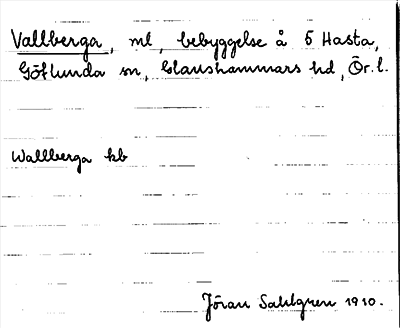 Vallberga, ml, bebyggelse å 5 Hasta,
Götlunda sn, Glanshammars hd, Ör. l.
Wallberga kb
Jöran Sahlgren 1910.